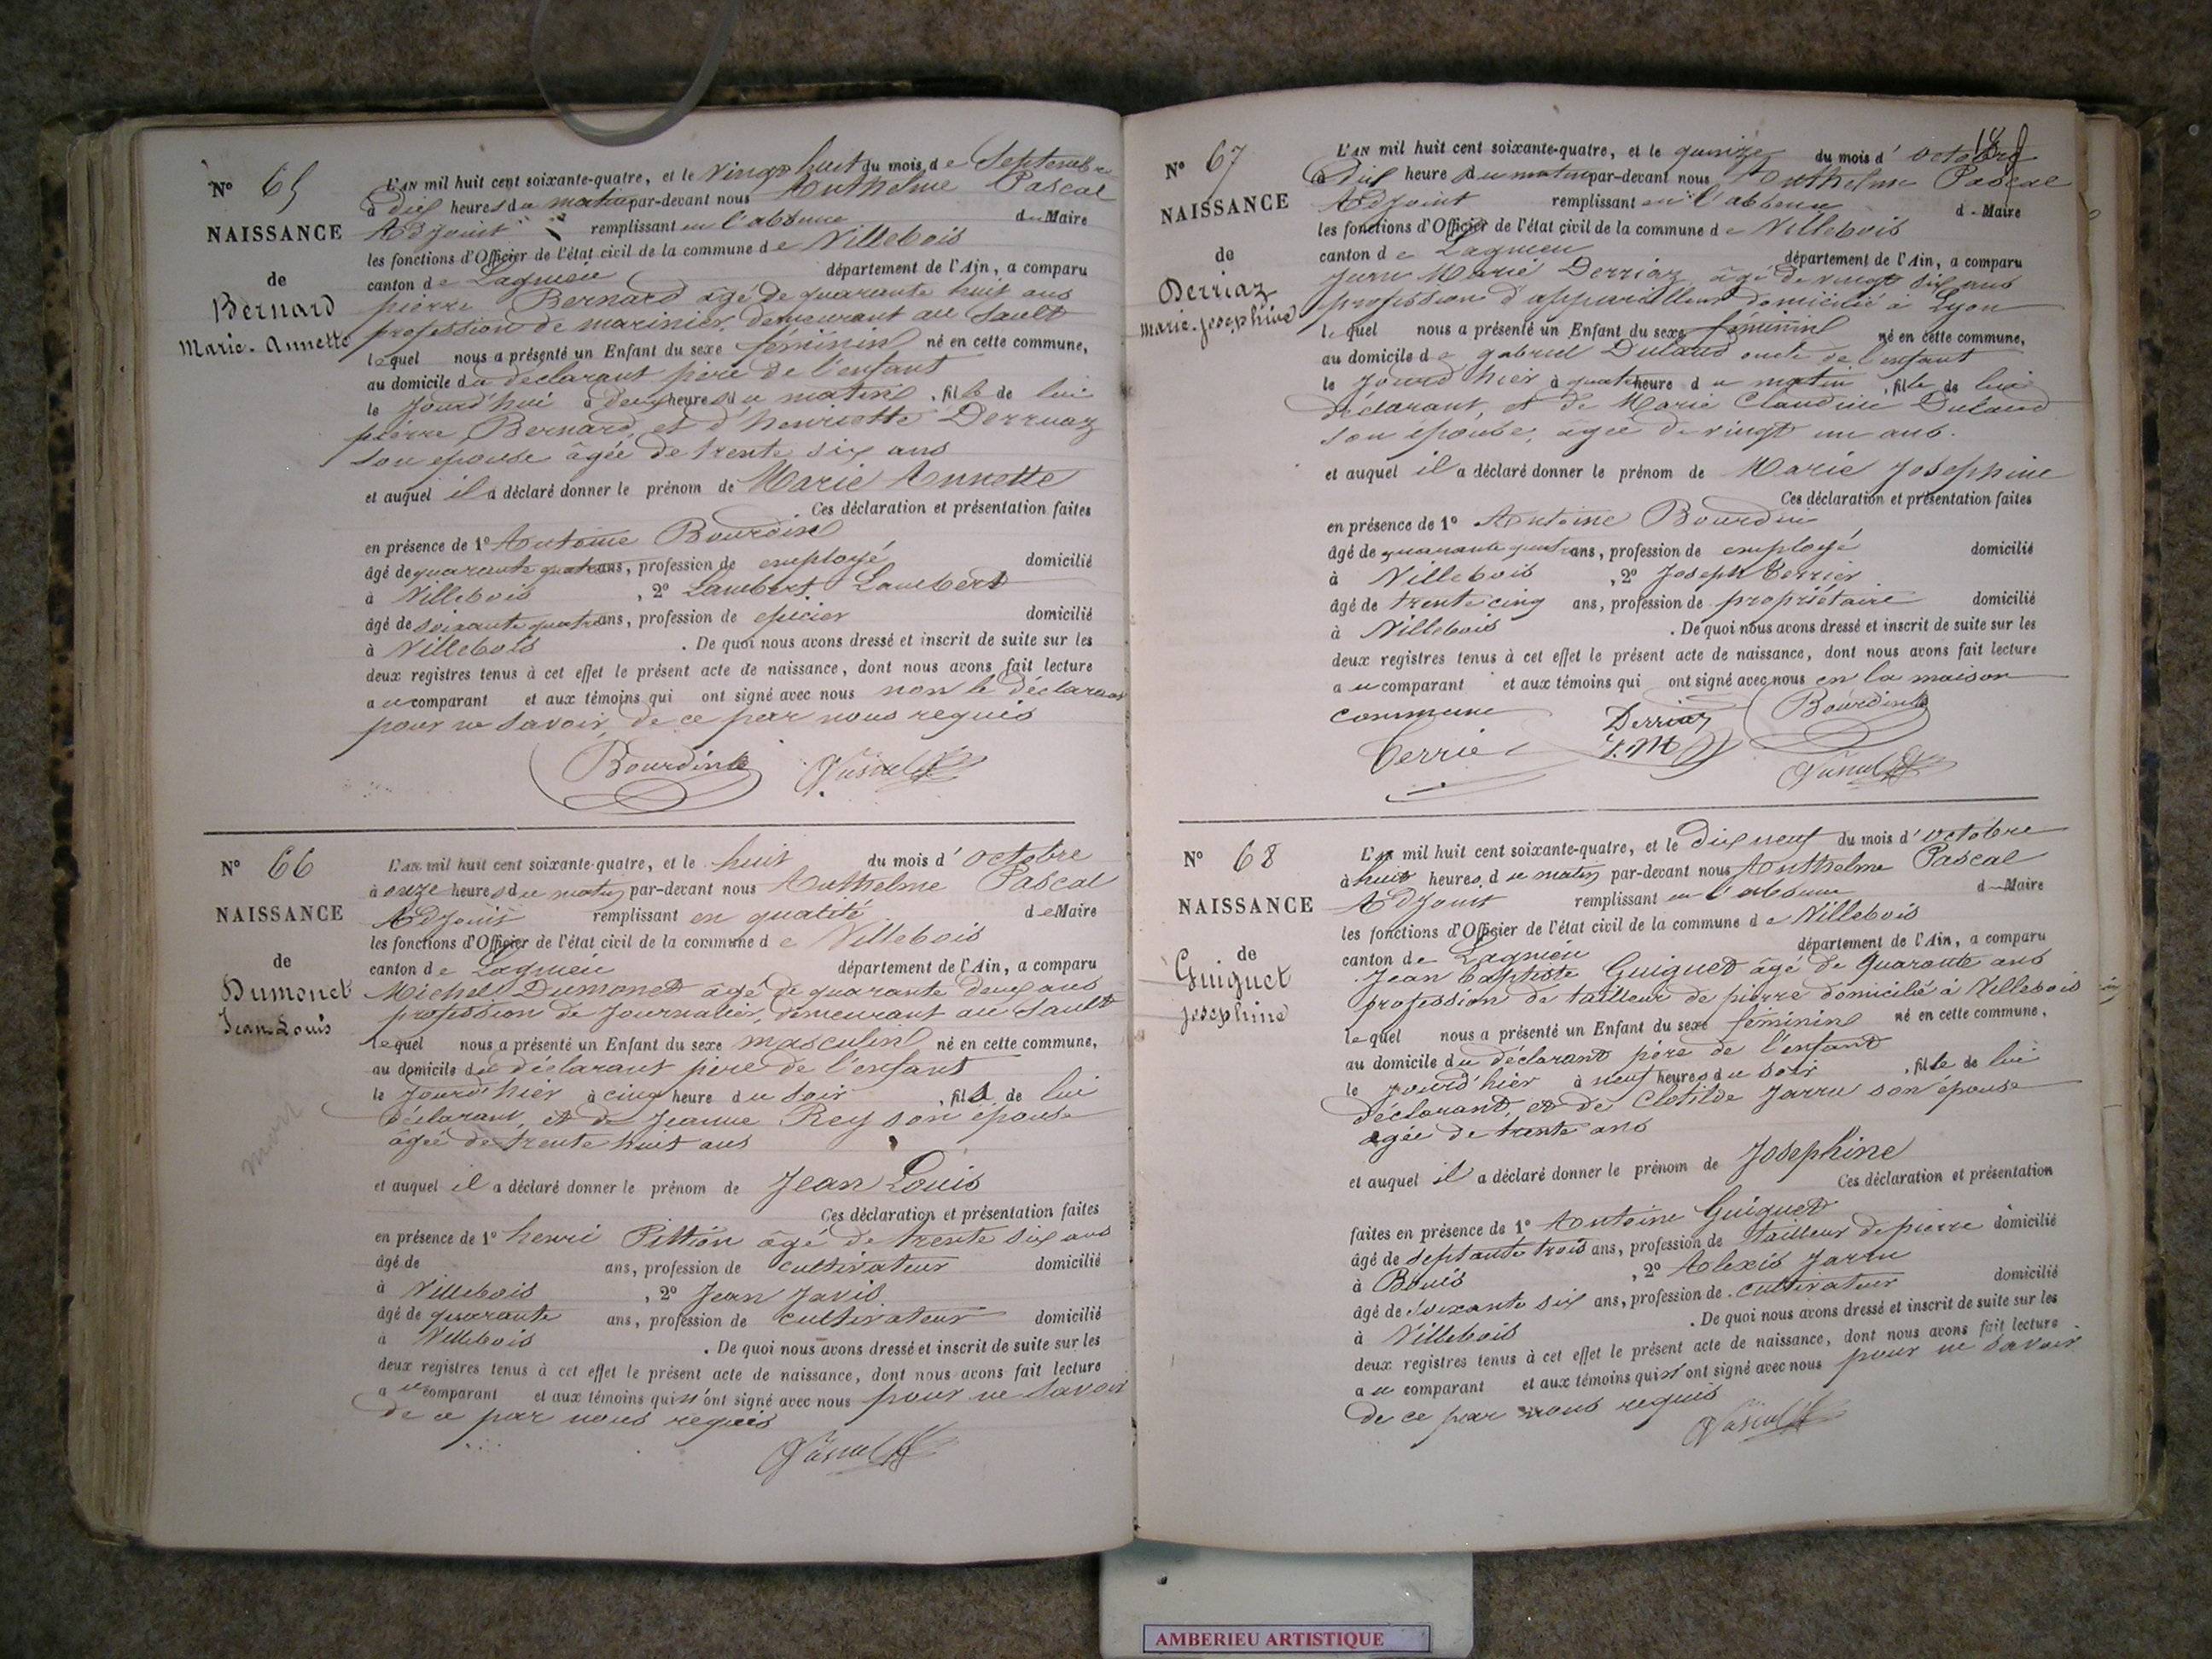 N° 65
NAISSANCE
de
Bernard
Marie-Annette
L'AN mil huit cent soixante-quatre, et le vingt huit du mois de Septembre
à dix heures du matin par-devant nous Anthelme Pascal
Adjoint remplissant en l'absence du Maire
les fonctions d'Officier de l'état civil de la commune de Villebois
canton de Lagnieu département de l'Ain, a comparu
pierre Bernard âgé de quarante huit ans
profession de marinier, demeurant au Sault
lequel nous a présenté un Enfant du sexe féminin né en cette commune,
au domicile du déclarant père de l'enfant
le jourd'hui à deux heures du matin, fille de lui
pierre Bernard, et d'henriette Derruaz
son epouse âgée de trente six ans
et auquel il a déclaré donner le prénom de Marie Annette
Ces déclaration et présentation faites
en présence de 1° Antoine Bourdin
âgé de quarante quatre ans, profession de employé domicilié
à Villebois, 2° Lambert Lambert
âgé de soixante quatre ans, profession de epicier domicilié
à Villebois. De quoi nous avons dressé et inscrit de suite sur les
deux registres tenus à cet effet le présent acte de naissance, dont nous avons fait lecture
au comparant et aux témoins qui ont signé avec nous non le déclarant
pour ne savoir, de ce par nous requis
Bourdin Pascal
N° 66
NAISSANCE
de
Dumonet
Jean-Louis
mort
L'AN mil huit cent soixante-quatre, et le huit du mois d'octobre
à onze heures du matin par-devant nous Anthelme Pascal
Adjoint remplissant en qualité de Maire
les fonctions d'Officier de l'état civil de la commune de Villebois
canton de Lagnieu département de l'Ain, a comparu
Michel Dumonet âgé de quarante deux ans
profession de Journalier, demeurant au Sault
lequel nous a présenté un Enfant du sexe masculin né en cette commune,
au domicile du déclarant père de l'enfant
le jourd'hier à cinq heure du soir, fils de lui
déclarant, et de Jeanne Rey son épouse
âgée de trente huit ans
et auquel il a déclaré donner le prénom de Jean Louis
Ces déclaration et présentation faites
en présence de 1° henri Pittion âgé de trente six ans
âgé de ans, profession de cultivateur domicilié
à Villebois, 2° Jean Javis
âgé de quarante ans, profession de cultivateur domicilié
à Villebois. De quoi nous avons dressé et inscrit de suite sur les
deux registres tenus à cet effet le présent acte de naissance, dont nous avons fait lecture
au comparant et aux témoins qui n'ont signé avec nous pour ne savoir
de ce par nous requis
Pascal
N° 67
NAISSANCE
de
Derriaz
marie-josephine
L'AN mil huit cent soixante-quatre, et le quinze du mois d'octobre
à dix heure du matin par-devant nous Anthelme Pascal
Adjoint remplissant en l'absence du Maire
les fonctions d'Officier de l'état civil de la commune de Villebois
canton de Lagnieu département de l'Ain, a comparu
Jean Marie Derriaz âgé de vingt six ans
profession d'appareilleur domicilié à Lyon
lequel nous a présenté un Enfant du sexe féminin né en cette commune,
au domicile de gabriel Duland oncle de l'enfant
le jourd'hier à quatre heure du matin, fille de lui
déclarant, et de Marie Claudine Duland
son épouse, âgée de vingt un ans.
et auquel il a déclaré donner le prénom de Marie Josephine
Ces déclaration et présentation faites
en présence de 1° Antoine Bourdin
âgé de quarante quatre ans, profession de employé domicilié
à Villebois, 2° Joseph Terrier
âgé de trente cinq ans, profession de propriétaire domicilié
à Villebois. De quoi nous avons dressé et inscrit de suite sur les
deux registres tenus à cet effet le présent acte de naissance, dont nous avons fait lecture
au comparant et aux témoins qui ont signé avec nous en la maison
commune Derriaz Bourdin
Terrier J.M Pascal
N° 68
NAISSANCE
de
Guiguet
josephine
L'AN mil huit cent soixante-quatre, et le dix neuf du mois d'octobre
à huit heures du matin par-devant nous Anthelme Pascal
Adjoint remplissant en l'absence du Maire
les fonctions d'Officier de l'état civil de la commune de Villebois
canton de Lagnieu département de l'Ain, a comparu
Jean baptiste Guiguet âgé de quarante ans
profession de tailleur de pierre domicilié à Villebois
lequel nous a présenté un Enfant du sexe féminin né en cette commune,
au domicile du déclarant père de l'enfant
le jourd'hier à neuf heures du soir, fille de lui
déclarant, et de Clotilde Jarru son épouse
agée de trente ans
et auquel il a déclaré donner le prénom de Josephine
Ces déclaration et présentation
faites en présence de 1° Antoine Guiguet
âgé de septante trois ans, profession de tailleur de pierre domicilié
à Bouis, 2° Alexis Jarru
âgé de soixante six ans, profession de cultivateur domicilié
à Villebois. De quoi nous avons dressé et inscrit de suite sur les
deux registres tenus à cet effet le présent acte de naissance, dont nous avons fait lecture
au comparant et aux témoins qui n'ont signé avec nous pour ne savoir
de ce par nous requis
Pascal
AMBERIEU ARTISTIQUE